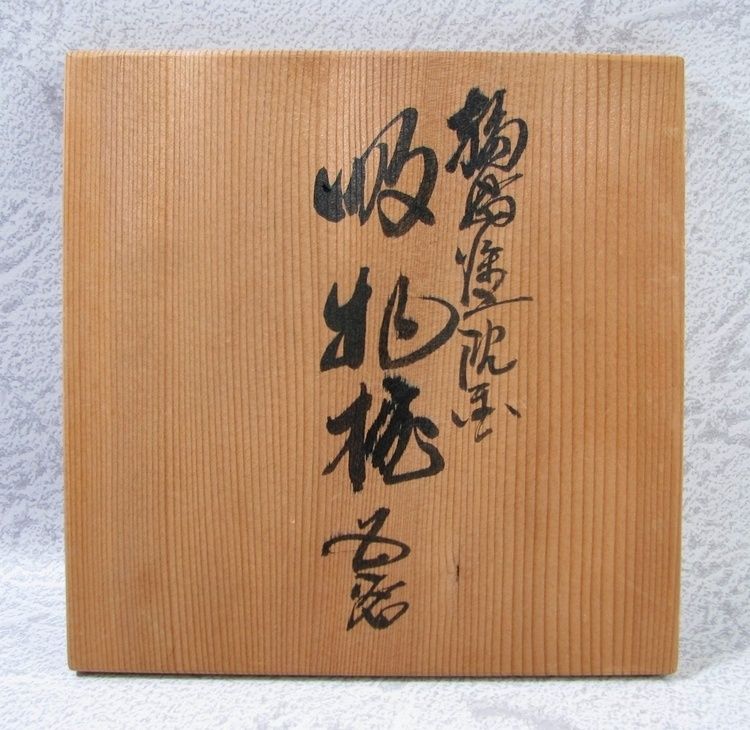 輪島塗沈金
吸物椀 五客